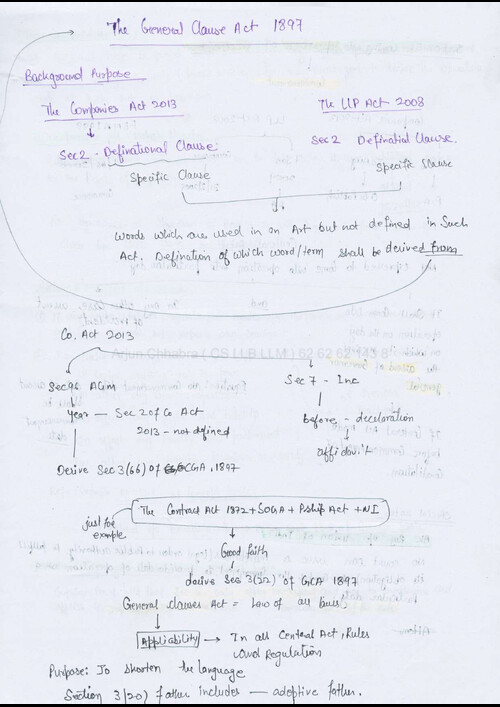 The General Clause Act 1897
Background Purpose
The Companies Act 2013
The LLP Act 2008
Sec 2 - Definational Clause:
Sec 2 Definatial Clause.
Specific Clause
Specific Clause
Words which are used in an Act but not defined in Such
Act. Defination of which word/term shall be derived from
Co. Act 2013
Arjun Chhabra | CS LLB LLM | 62 62 62 143 8
Sec 96 AGM
Sec 7 - Inc
Year — Sec 2 of Co Act
before - decleration
2013 - not defined
affidavit
Derive Sec 3(66) of GCA, 1897
just for
example
The Contract Act 1872 + SOGA + P.ship Act + NI
Good faith
derive Sec 3(22) of GCA 1897
General clauses Act = Law of all laws.
Appliability → In all Central Act, Rules
and Regulation
Purpose: To shorten the language
Section 3(20) father includes — adoptive father.